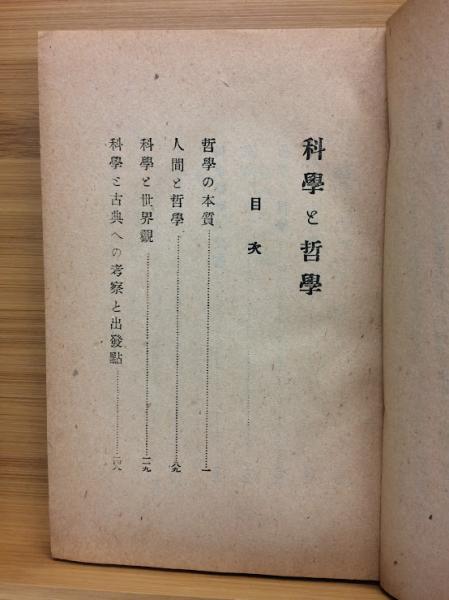 科學と哲學
目次
哲學の本質……一
人間と哲學……八九
科學と世界觀……一一九
科學と古典への考察と出發點……